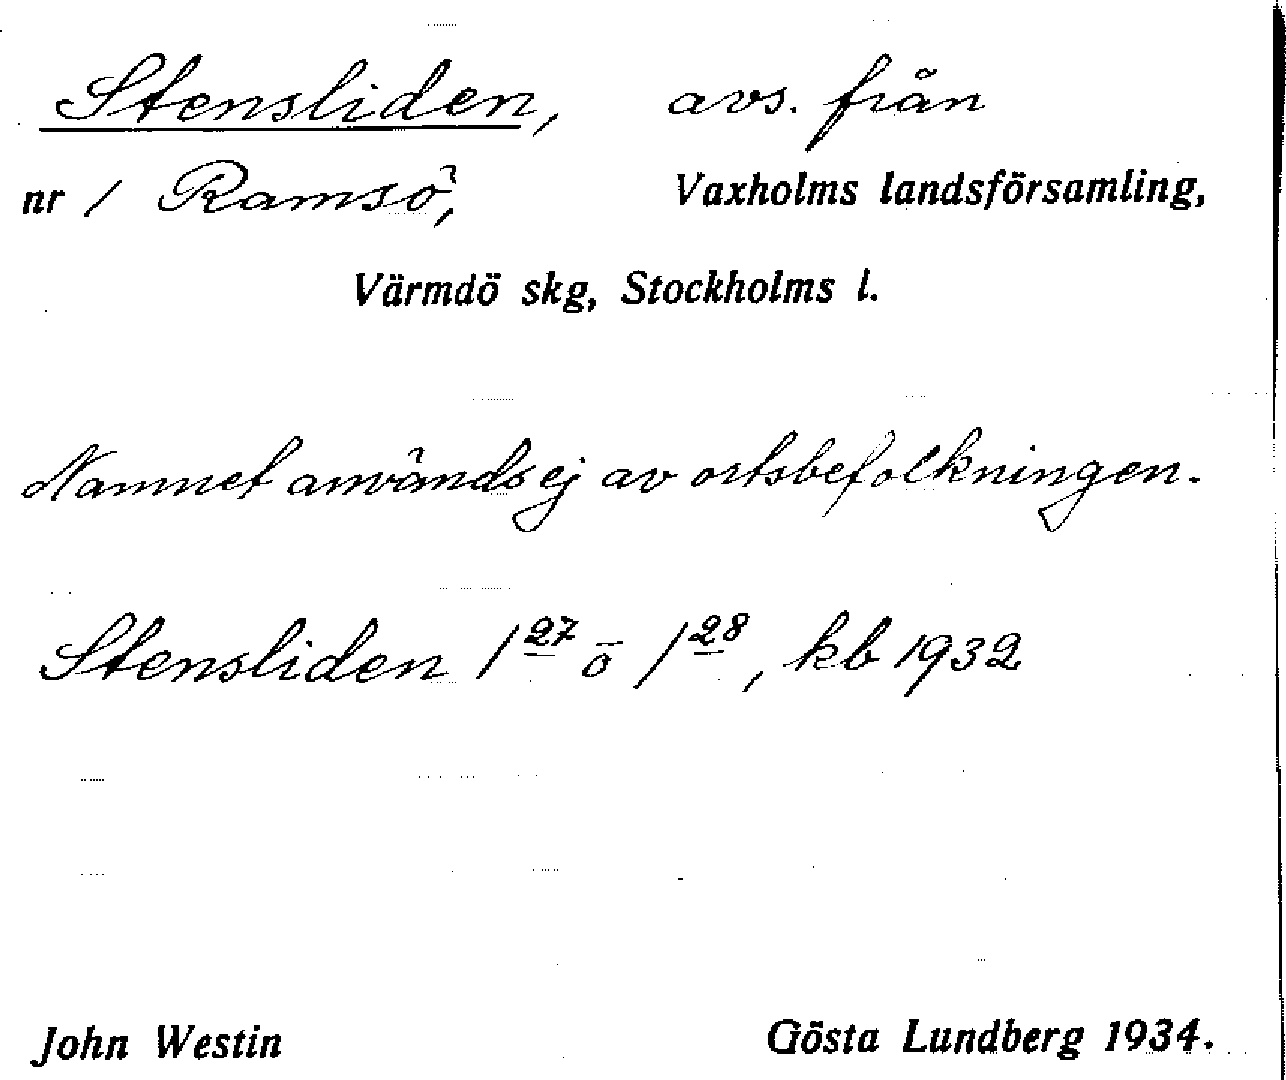 Stensliden, avs. från
nr 1 Ramsö, Vaxholms landsförsamling,
Värmdö skg, Stockholms l.
Namnet används ej av ortsbefolkningen.
Stensliden 1 27 o 1 28, kb 1932
John Westin Gösta Lundberg 1934.